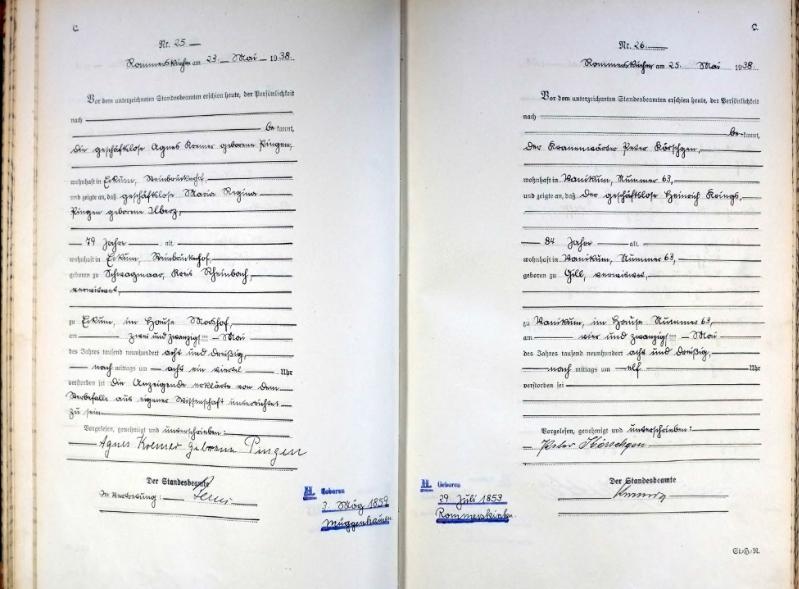 C.
Nr. 25
Rommerskirchen am 23 Mai 1938.
Vor dem unterzeichneten Standesbeamten erschien heute, der Persönlichkeit
nach
be kannt,
die geschäftslose Agnes Kremer geborene Pingen,
wohnhaft in Eckum,
und zeigte an, daß geschäftslose Maria Regina
Pingen geborene Ilberz,
79 Jahre alt,
wohnhaft in Eckum,
geboren zu Kreis Rheinbach,
verwitwet,
zu Eckum, im Hause
am zwei und zwanzigsten Mai
des Jahres tausend neunhundert acht und dreißig,
nach mittags um acht ein viertel Uhr
verstorben sei Die Anzeigende erklärte von dem
Sterbefalle aus eigener Wissenschaft unterrichtet
zu sein.
Vorgelesen, genehmigt und unterschrieben:
Agnes Kremer geborene Pingen
Der Standesbeamte
In Vertretung:
H. Geboren
3. 1859
Müggenhausen
C.
Nr. 26
Rommerskirchen am 25. Mai 1938.
Vor dem unterzeichneten Standesbeamten erschien heute, der Persönlichkeit
nach
be kannt,
der Kranenwärter Peter Körschgen,
wohnhaft in Vanikum, Nummer 63,
und zeigte an, daß der geschäftslose Heinrich Krings,
84 Jahre alt,
wohnhaft in Vanikum, Nummer 63,
geboren zu Gill, verwitwet,
zu Vanikum, im Hause Nummer 63,
am vier und zwanzigsten Mai
des Jahres tausend neunhundert acht und dreißig,
nach mittags um elf Uhr
verstorben sei
Vorgelesen, genehmigt und unterschrieben:
Peter Körschgen
Der Standesbeamte
H. Geboren
29 Juli 1853
Rommerskirchen.
St.-H.-N.